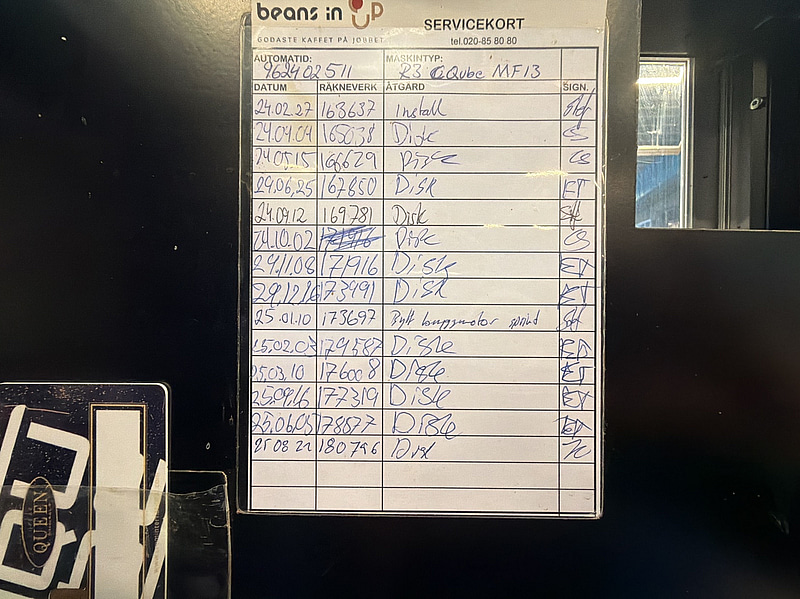 beans in UP
SERVICEKORT
GODASTE KAFFET PÅ JOBBET
tel.020-85 80 80
AUTOMATID: MASKINTYP:
962402511 R3 Qube MF13
DATUM RÄKNEVERK ÅTGÄRD SIGN.
24.02.27 163637 Install
24.04.04 165038 Disk CS
24.05.15 166629 Disk CS
24.06.25 167850 Disk ET
24.09.12 169781 Disk
24.10.02 Disk CS
24.11.08 171916 Disk ET
24.12.16 173491 Disk ET
25.01.10 173697 Bytt
25.02.03 174587 Disk ET
25.03.10 176008 Disk ET
25.04.16 177319 Disk ET
25.06.05 178577 Disk ET
25 08 22 180796 Disk
QUEEN